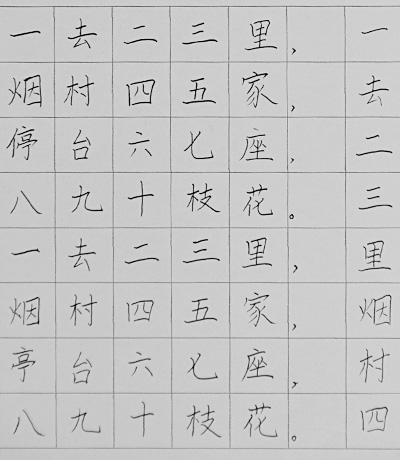 一去二三里，一
烟村四五家，去
停台六七座，二
八九十枝花。三
一去二三里，里
烟村四五家，烟
亭台六七座，村
八九十枝花。四